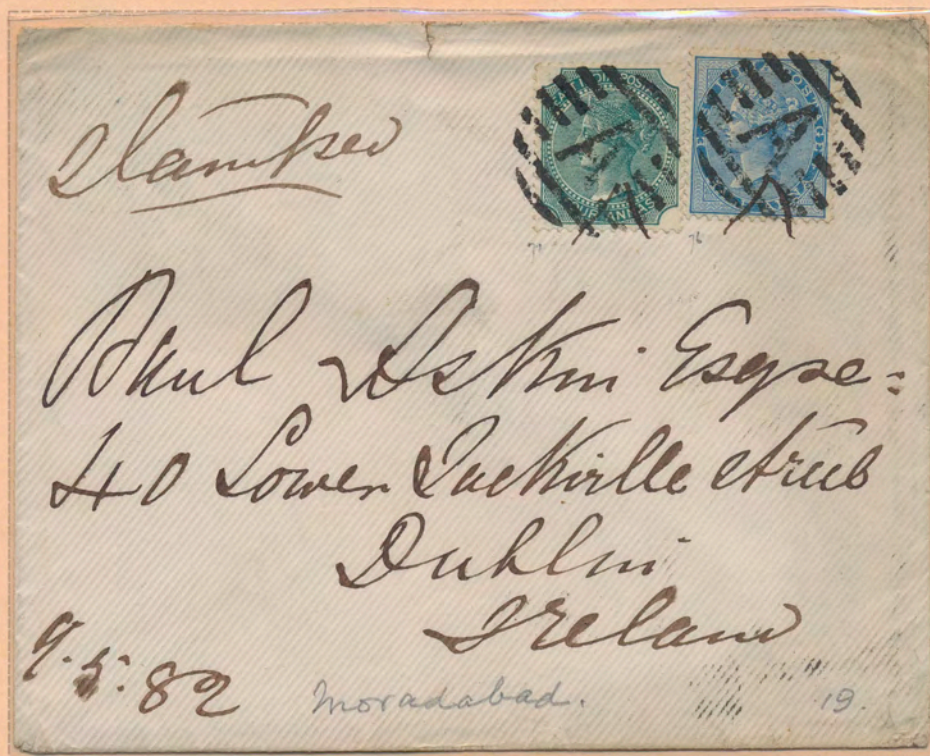 Stamped
Paul Askin Esqre
40 Lower Sackville Street
Dublin
Ireland
9.5.82
Moradabad.
19.